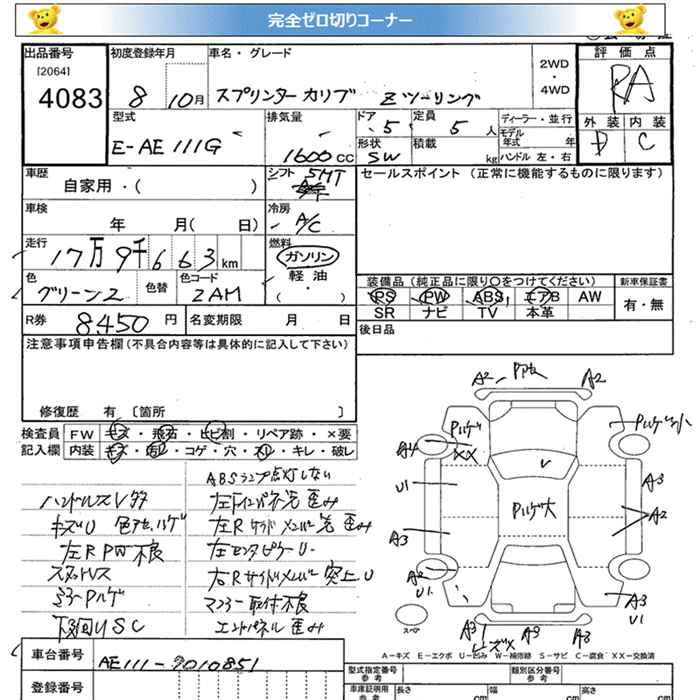 完全ゼロ切りコーナー
出品番号 初度登録年月 車名・グレード 2WD・4WD 評価点
[2064]
4083 8 10月 スプリンター カリブ Zツーリング RA
型式 排気量 ドア 定員 ディーラー・並行 外装 内装
E-AE111G 1600cc 5 5人 モデル年式 年 D C
形状 SW 積載 kg ハンドル 左・右
車歴 シフト 5MT セールスポイント (正常に機能するものに限ります)
自家用・( )
車検 冷房 A/C
年 月( 日)
走行 燃料
17万9千663km ガソリン
軽油
色 色替 色コード ( ・ )
グリーン2 2AM
装備品 (純正品に限り○をつけてください) 新車保証書
PS PW ABS エアB AW 有・無
SR ナビ TV 本革
R券 8450円 名変期限 月 日 後日品
注意事項申告欄 (不具合内容等は具体的に記入して下さい)
修復歴 有 [箇所 ]
検査員 FW キズ・飛石・ヒビ割・リペア跡・×要
記入欄 内装 キズ・汚レ・コゲ・穴・スレ・キレ・破レ
A2 A2
ハゲ ハゲ小
XX
U1
A3
ハゲ大
A2
A3
A2
U1
A3
U1
A3 A3
スペア
ABSランプ点灯しない
キズU
左RPW不良
ミラーハゲ
下回りSC
マフラー取付不良
エンドパネル歪み
A-キズ E-エクボ U-凹み W-補修跡 S-サビ C-腐食 XX-交換済
車台番号 AE111-7010851
登録番号
型式指定番号 参考 類別区分番号 参考
車庫証明用 参考 長さ cm 幅 cm 高さ cm